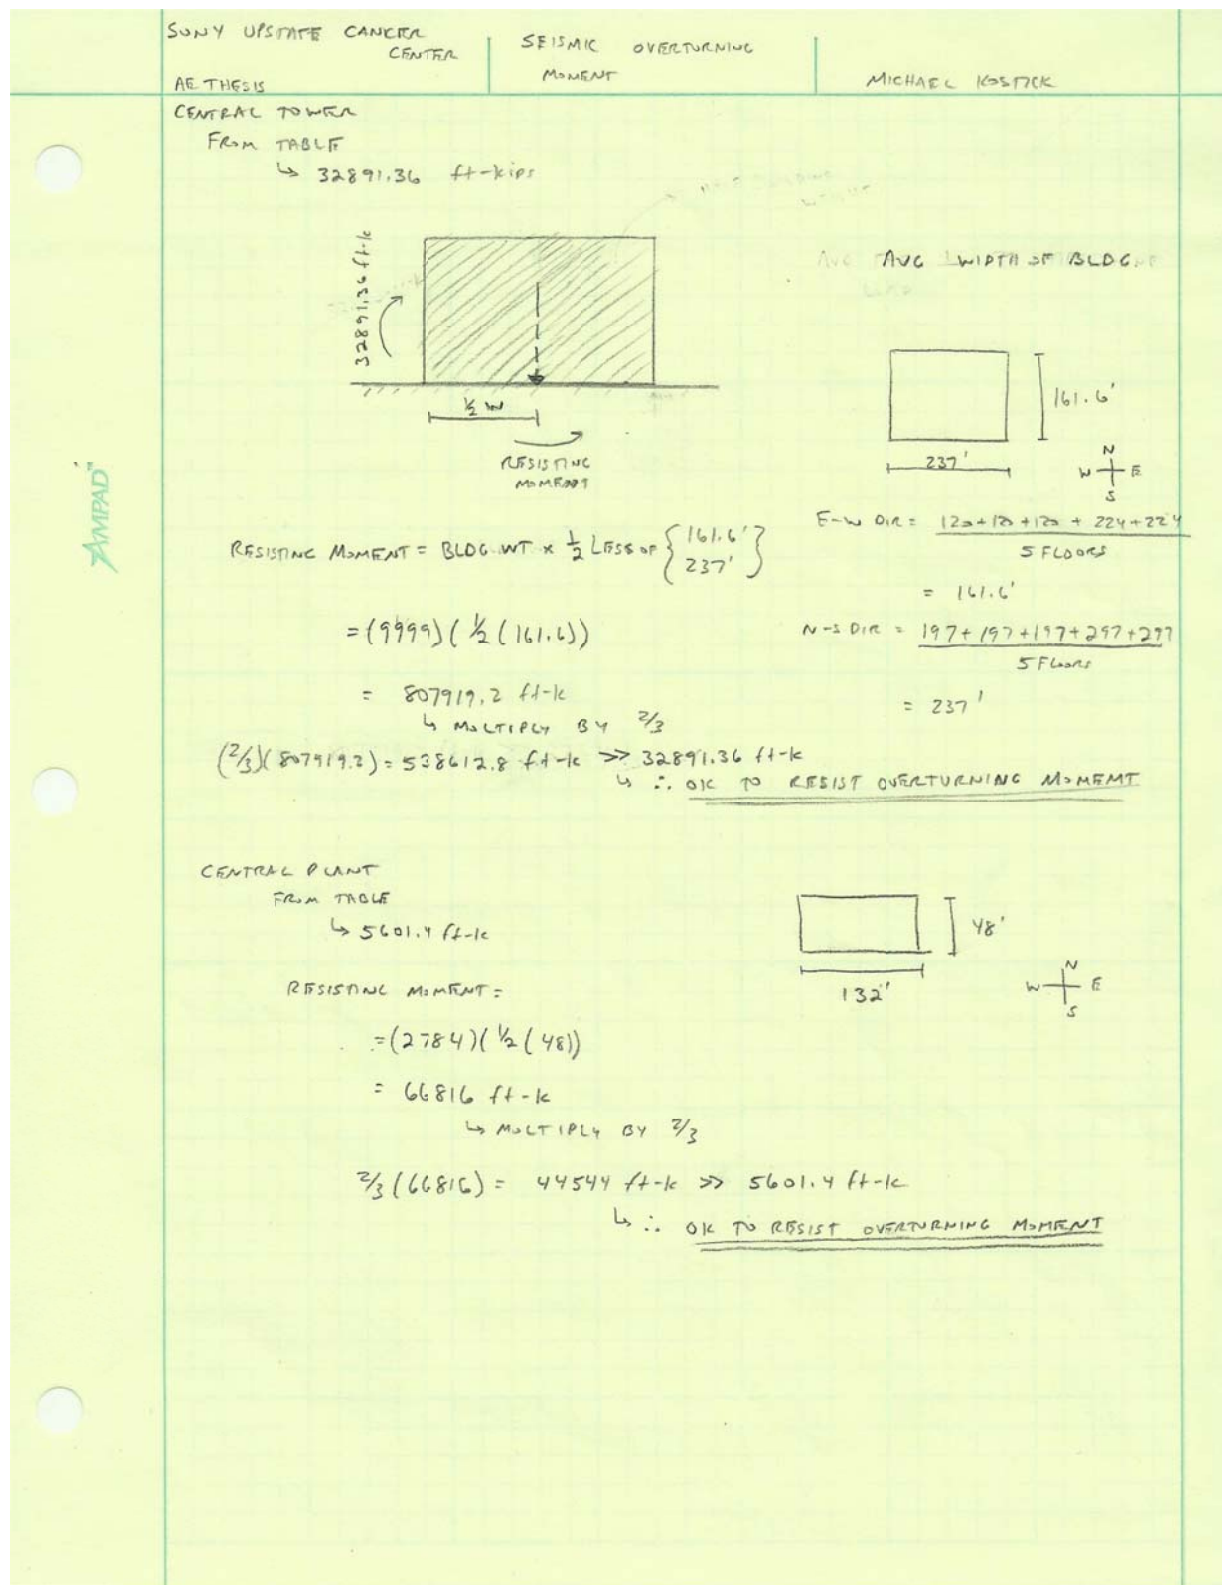 SUNY UPSTATE CANCER
CENTER
AE THESIS
SEISMIC OVERTURNING
MOMENT
MICHAEL KOSTICK
CENTRAL TOWER
FROM TABLE
↳ 32891.36 ft-kips
32891.36 ft-k
1/2 W
RESISTING
MOMENT
AVG WIDTH OF BLDG
161.6'
237'
N
W E
S
E-W DIR = 120+120+120+224+224
5 FLOORS
= 161.6'
N-S DIR = 197+197+197+297+297
5 FLOORS
= 237'
RESISTING MOMENT = BLDG WT x 1/2 LESS OF { 161.6' }
{ 237' }
= (9999)(1/2(161.6))
= 807919.2 ft-k
↳ MULTIPLY BY 2/3
(2/3)(807919.2) = 538612.8 ft-k >> 32891.36 ft-k
↳ ∴ OK TO RESIST OVERTURNING MOMEMT
AMPAD™
CENTRAL PLANT
FROM TABLE
↳ 5601.4 ft-k
48'
132'
N
W E
S
RESISTING MOMENT =
= (2784)(1/2(48))
= 66816 ft-k
↳ MULTIPLY BY 2/3
2/3(66816) = 44544 ft-k >> 5601.4 ft-k
↳ ∴ OK TO RESIST OVERTURNING MOMENT